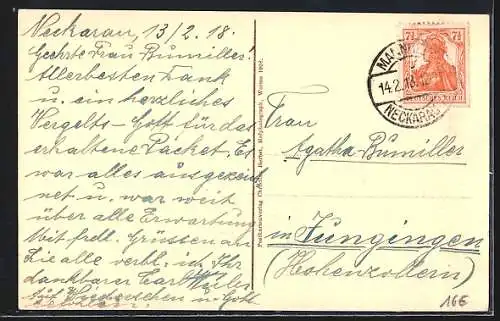 Neckarau, 13/2. 18.
Geehrte Frau Bumiller!
Allerbesten Dank
u. ein herzliches
Vergelts-Gott für das
erhaltene Packet. Es
war alles ausgezeich
net u. war weit
über alle Erwartung
Mit frdl. Grüssen an
Sie alle verbl. ich Ihr
dankbarer Carl
Auf Wiedersehen u. Gott
Postkartenverlag Worms 1906.
MANNHEIM
14.2.18.
NECKARAU
7½ 7½
DEUTSCHES REICH
Frau
Agatha Bumiller
in Jungingen
(Hohenzollern)
16E